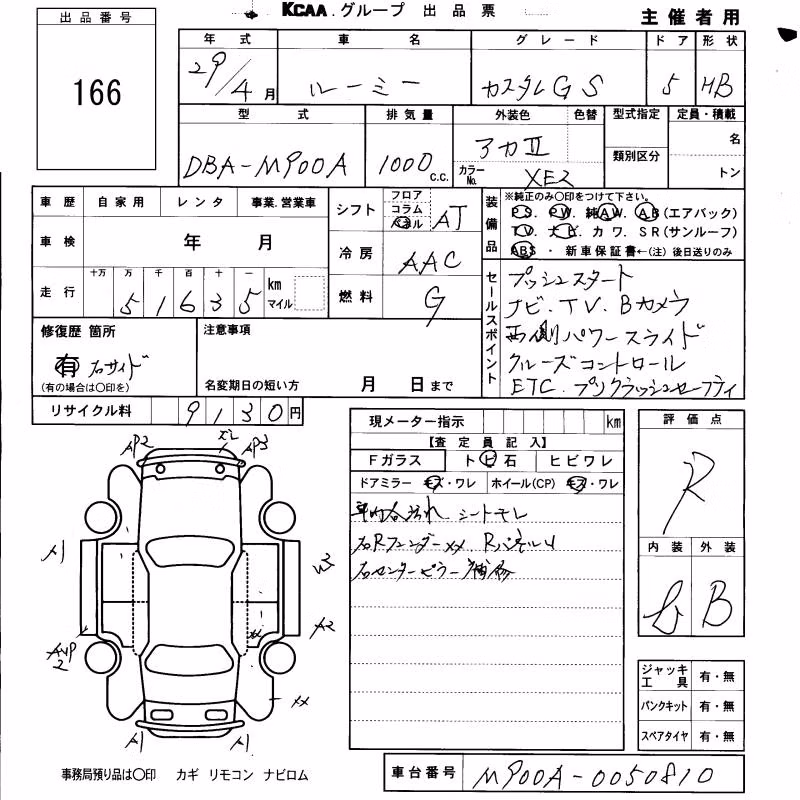 KCAA.グループ 出品票
主催者用
出品番号
166
年式 車名 グレード ドア 形状
29/4月 ルーミー カスタムGS 5 HB
型式 排気量 外装色 色替 型式指定 定員・積載
DBA-M900A 1000 c.c. アカⅡ 類別区分 名
カラーNo. XE2 トン
車歴 自家用 レンタ 事業.営業車
車検 年 月
走行 十万 万 千 百 十 一 km マイル
5 1 6 3 5
シフト フロア コラム パネル AT
冷房 AAC
燃料 G
装備品
※純正のみ○印をつけて下さい。
PS. PW. 純AW. AB(エアバック)
TV. ナビ. カワ. SR(サンルーフ)
ABS・新車保証書←(注)後日送りのみ
セールスポイント
プッシュスタート
ナビ.TV.Bカメラ
両側パワースライド
クルーズコントロール
ETC.プリクラッシュセーフティ
修復歴 箇所
有 右サイド
(有の場合は○印を)
注意事項
名変期日の短い方 月 日まで
リサイクル料 9130円
現メーター指示 km
【査定員記入】
Fガラス トビ石 ヒビワレ
ドアミラー キズ・ワレ ホイール(CP) キズ・ワレ
車内 汚れ シートモレ
右Rフェンダーxx. Rパネルu
右センターピラー補修
評価点
R
内装 外装
B
ジャッキ工具 有・無
パンクキット 有・無
スペアタイヤ 有・無
AP2 AP3
A1 W3
A2
xx
AUP2
xx
A1 A1
事務局預り品は○印 カギ リモコン ナビロム
車台番号 M900A-0050810